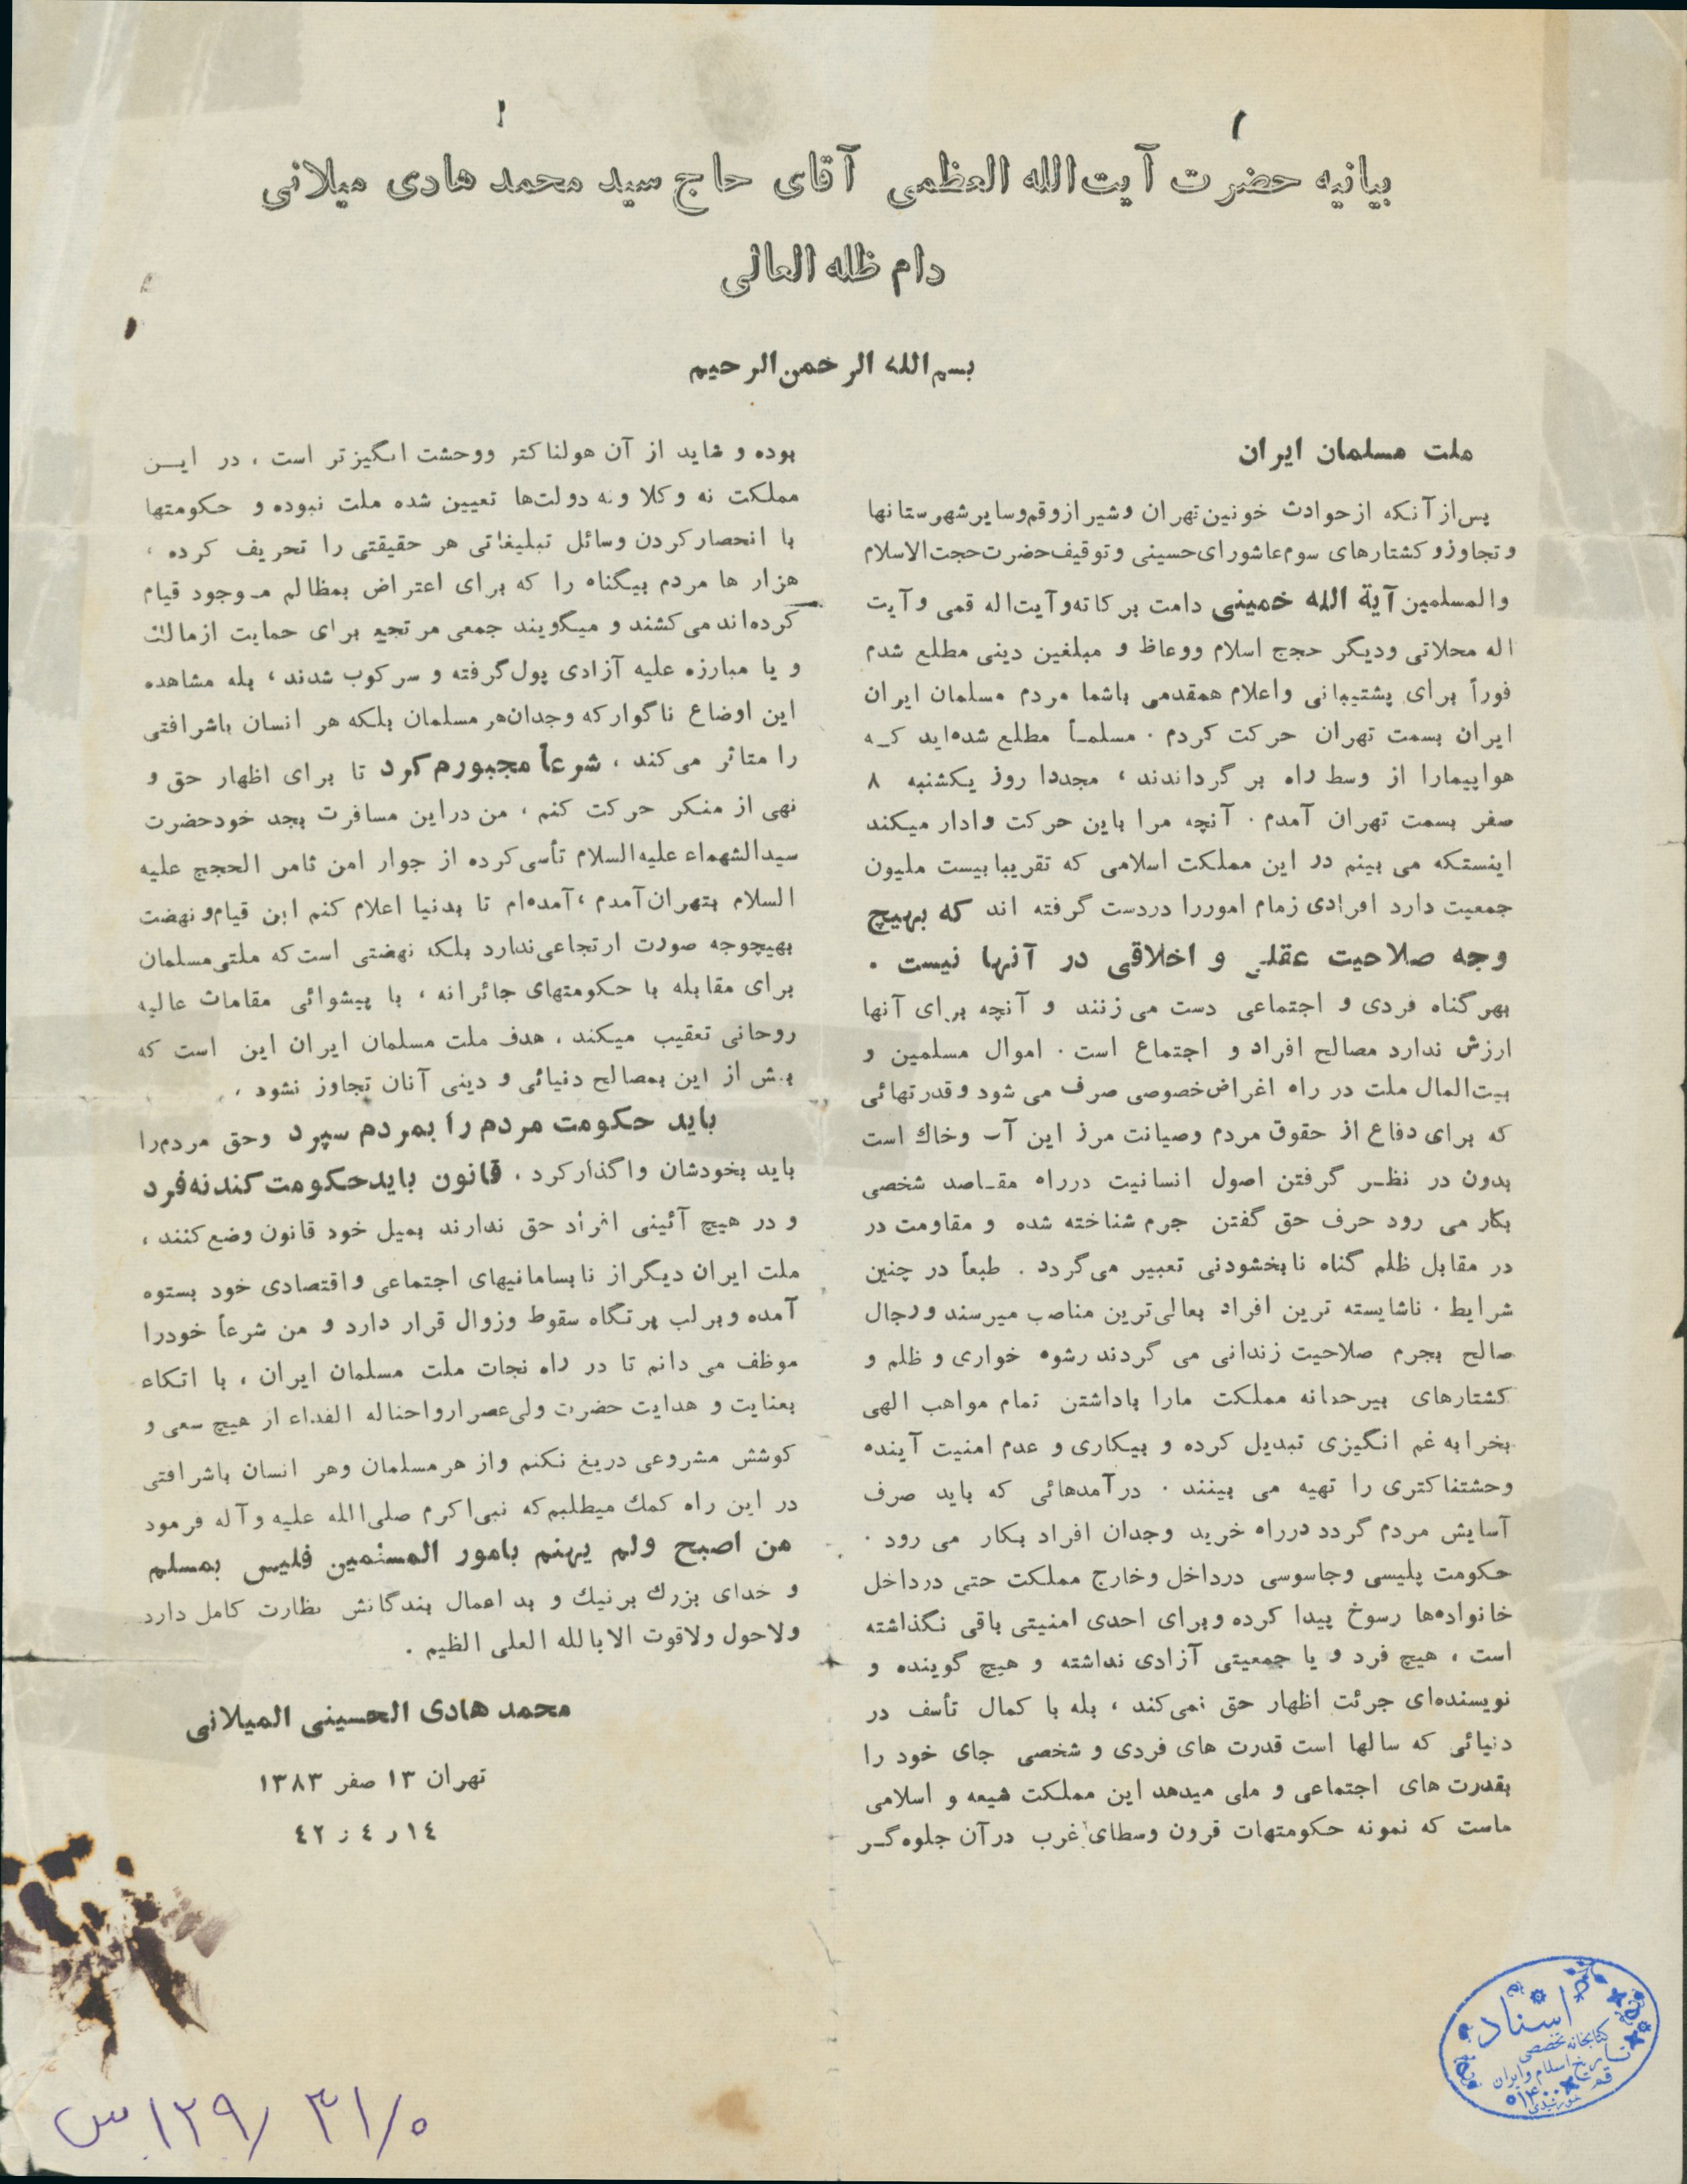 بیانیه حضرت آیت‌الله العظمی آقای حاج سید محمد هادی میلانی
دام ظله العالی
بسم‌الله الرحمن‌الرحیم
ملت مسلمان ایران
پس‌از آنکه از حوادث خونین‌تهران وشیرازوقم‌وسایرشهرستانها
وتجاوزوکشتارهای سوم‌عاشورای‌حسینی وتوقیف‌حضرت‌حجت‌الاسلام
والمسلمین آیة الله خمینی دامت برکاته‌وآیت‌اله قمی وآیت
اله محلاتی ودیگر حجج اسلام ووعاظ و مبلغین دینی مطلع شدم
فوراً برای پشتیبانی واعلام همقدمی باشما مردم مسلمان ایران
ایران بسمت تهران حرکت کردم . مسلمـاً مطلع شده‌اید کـه
هواپیمارا از وسط راه بر گرداندند ، مجددا روز یکشنبه ۸
صفر بسمت تهران آمدم . آنچه مرا باین حرکت وادار میکند
اینستکه می بینم در این مملکت اسلامی که تقریبا بیست ملیون
جمعیت دارد افرادی زمام اموررا دردست گرفته اند که بهیچ
وجه صلاحیت عقلی و اخلاقی در آنها نیست .
بهر گناه فردی و اجتماعی دست می زنند و آنچه برای آنها
ارزش ندارد مصالح افراد و اجتماع است . اموال مسلمین و
بیت‌المال ملت در راه اغراض‌خصوصی صرف می شود وقدرتهائی
که برای دفاع از حقوق مردم وصیانت مرز این آب وخاك است
بدون در نظـر گرفتن اصول انسانیت درراه مقـاصد شخصی
بکار می رود حرف حق گفتن جرم شناخته شده و مقاومت در
در مقابل ظلم گناه نابخشودنی تعبیر می‌گردد . طبعاً در چنین
شرایط . ناشایسته ترین افراد بعالی‌ترین مناصب میرسند ورجال
صالح بجرم صلاحیت زندانی می گردند رشوه خواری و ظلم و
کشتارهای بیرحمانه مملکت مارا باداشتن تمام مواهب الهی
بخرابه غم انگیزی تبدیل کرده و بیکاری و عدم امنیت آینده
وحشتناکتری را تهیه می بینند . درآمدهائی که باید صرف
آسایش مردم گردد درراه خرید وجدان افراد بکار می رود .
حکومت پلیسی وجاسوسی درداخل وخارج مملکت حتی درداخل
خانواده‌ها رسوخ پیدا کرده وبرای احدی امنیتی باقی نگذاشته
است ، هیچ فرد و یا جمعیتی آزادی نداشته و هیچ گوینده و
نویسنده‌ای جرئت اظهار حق نمی‌کند ، بله با کمال تأسف در
دنیائی که سالها است قدرت های فردی و شخصی جای خود را
بقدرت های اجتماعی و ملی میدهد این مملکت شیعه و اسلامی
ماست که نمونه حکومتهات قرون وسطای غرب درآن جلوه گـر
بوده و شاید از آن هولناکتر ووحشت انگیزتر است ، در ایـن
مملکت نه وکلا ونه دولت‌ها تعیین شده ملت نبوده و حکومتها
با انحصارکردن وسائل تبلیغاتی هر حقیقتی را تحریف کرده ،
هزار ها مردم بیگناه را که برای اعتراض بمظالم مـوجود قیام
کرده‌اند می‌کشند و میگویند جمعی مرتجع برای حمایت ازمالك
و یا مبارزه علیه آزادی پول‌گرفته و سرکوب شدند ، بله مشاهده
این اوضاع ناگوارکه وجدان‌هرمسلمان بلکه هر انسان باشرافتی
را متاثر می‌کند ، شرعاً مجبورم‌کرد تا برای اظهار حق و
نهی از منکر حرکت کنم ، من دراین مسافرت بجد خودحضرت
سیدالشهداء علیه‌السلام تأسی‌کرده از جوار امن ثامر الحجج علیه
السلام بتهران‌آمدم ، آمده‌ام تا بدنیا اعلام کنم این قیام‌ونهضت
بهیچوجه صورت ارتجاعی‌ندارد بلکه نهضتی است‌که ملتی‌مسلمان
برای مقابله با حکومتهای جائرانه ، با پیشوائی مقامات عالیه
روحانی تعقیب میکند ، هدف ملت مسلمان ایران این است که
بیش از این بمصالح دنیائی و دینی آنان تجاوز نشود .
باید حکومت مردم را بمردم سپرد وحق مردم‌را
باید بخودشان واگذارکرد . قانون بایدحکومت‌کندنه‌فرد
و در هیچ آئینی افراد حق ندارند بمیل خود قانون وضع‌کنند ،
ملت ایران دیگراز نابسامانیهای اجتماعی واقتصادی خود بستوه
آمده وبرلب پرتگاه سقوط وزوال قرار دارد و من شرعاً خودرا
موظف می دانم تا در راه نجات ملت مسلمان ایران ، با اتکاء
بعنایت و هدایت حضرت ولی‌عصرارواحناله الفداء از هیچ سعی و
کوشش مشروعی دریغ نکنم واز هرمسلمان وهر انسان باشرافتی
در این راه کمك میطلبم‌که نبی‌اکرم صلی‌الله علیه وآله فرمود
من اصبح ولم یهتم بامور المسلمین فلیس بمسلم
و خدای بزرك برنیك و بد اعمال بندگانش نظارت کامل دارد
ولاحول ولاقوت الابالله العلی الظیم .
محمد هادی الحسینی المیلانی
تهران ۱۳ صفر ۱۳۸۳
۱٤ر٤ر٤۲
اسناد
کتابخانه تخصصی
تاریخ اسلام و ایران
قم
۱۲۹/ ۳۱/۰ س